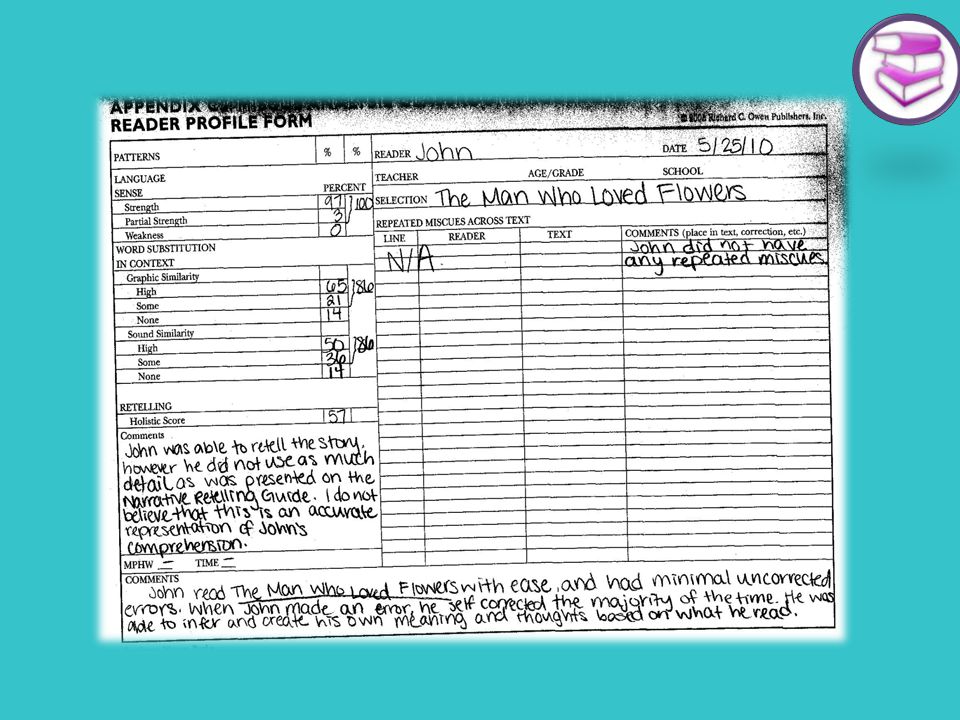 APPENDIX
READER PROFILE FORM
© 2005 Richard C. Owen Publishers, Inc.
PATTERNS % % READER John DATE 5/25/10
LANGUAGE TEACHER AGE/GRADE SCHOOL
SENSE PERCENT
Strength 97 ] 100 SELECTION The Man Who Loved Flowers
Partial Strength 3
Weakness 0
REPEATED MISCUES ACROSS TEXT
LINE READER TEXT COMMENTS (place in text, correction, etc.)
N/A John did not have
any repeated miscues.
WORD SUBSTITUTION
IN CONTEXT
Graphic Similarity
High 65 ] 86
Some 21
None 14
Sound Similarity
High 50 ] 86
Some 36
None 14
RETELLING
Holistic Score 57
Comments
John was able to retell the story,
however he did not use as much
detail as was presented on the
Narrative Retelling Guide. I do not
believe that this is an accurate
representation of John's
comprehension.
MPHW — TIME —
COMMENTS
John read The Man Who Loved Flowers with ease, and had minimal uncorrected
errors. When John made an error, he self corrected the majority of the time. He was
able to infer and create his own meaning and thoughts based on what he read.